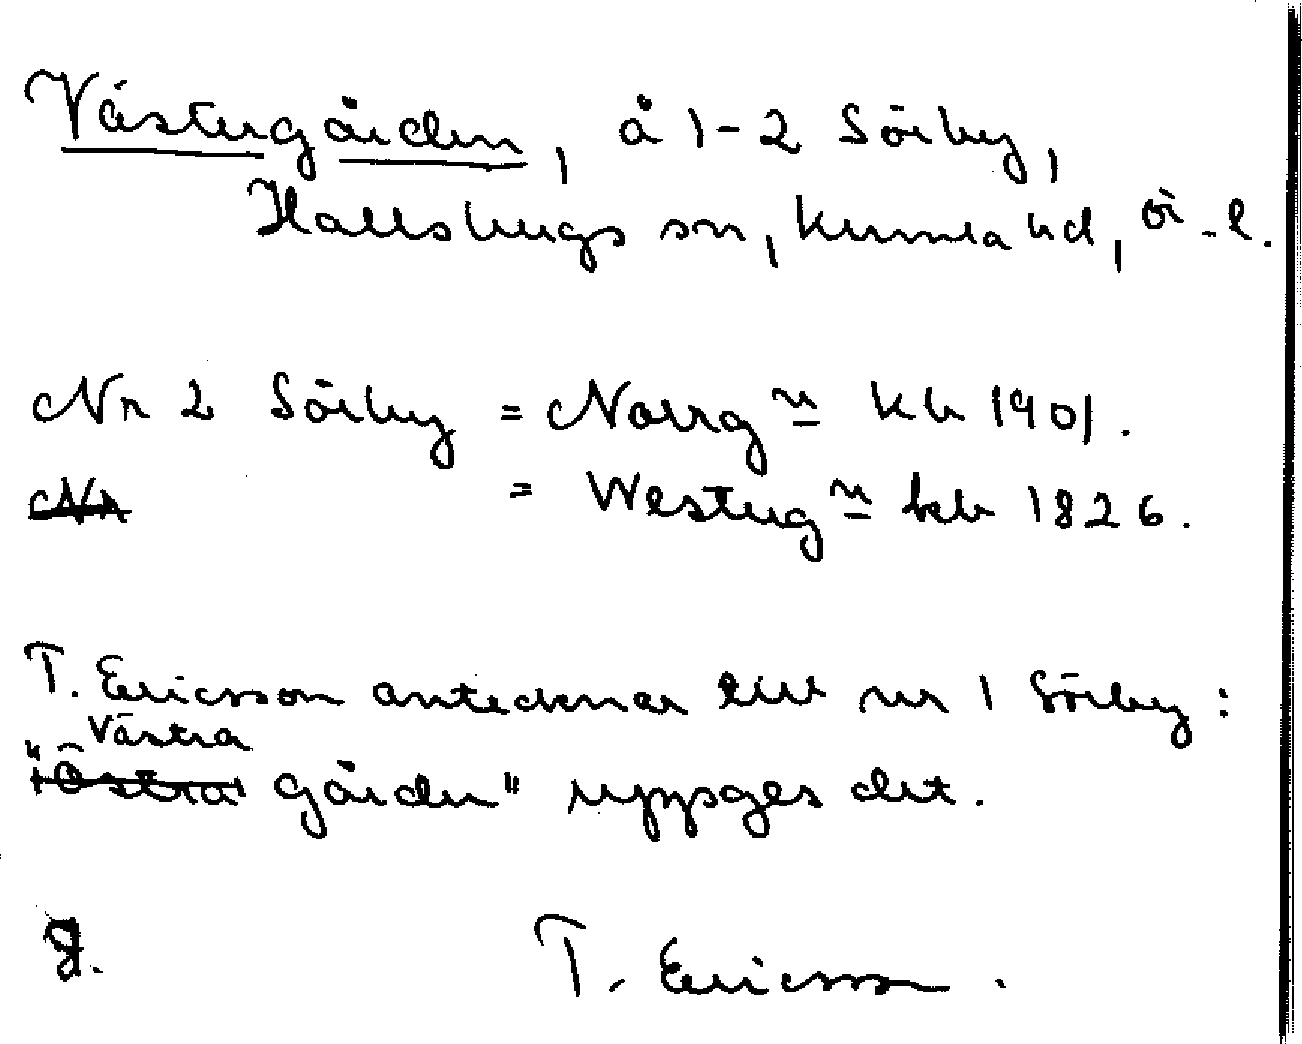 Västergården, å 1-2 Sörby,
Hallsbergs sn, Kumla hd, Ör. l.
Nr 2 Sörby = Norrg n kb 1901.
Nr = Westerg n kb 1826.
T. Ericsson antecknar till nr 1 Sörby:
Västra
"Östra gården" uppges det.
T. Ericsson.